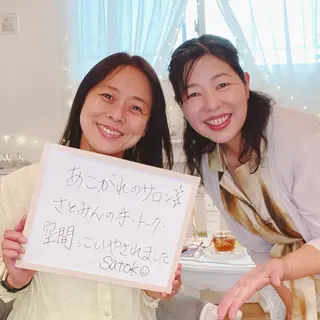 あこがれのサロン✨
さとみんの手・トーク・
空間にいやされました
Satok☺